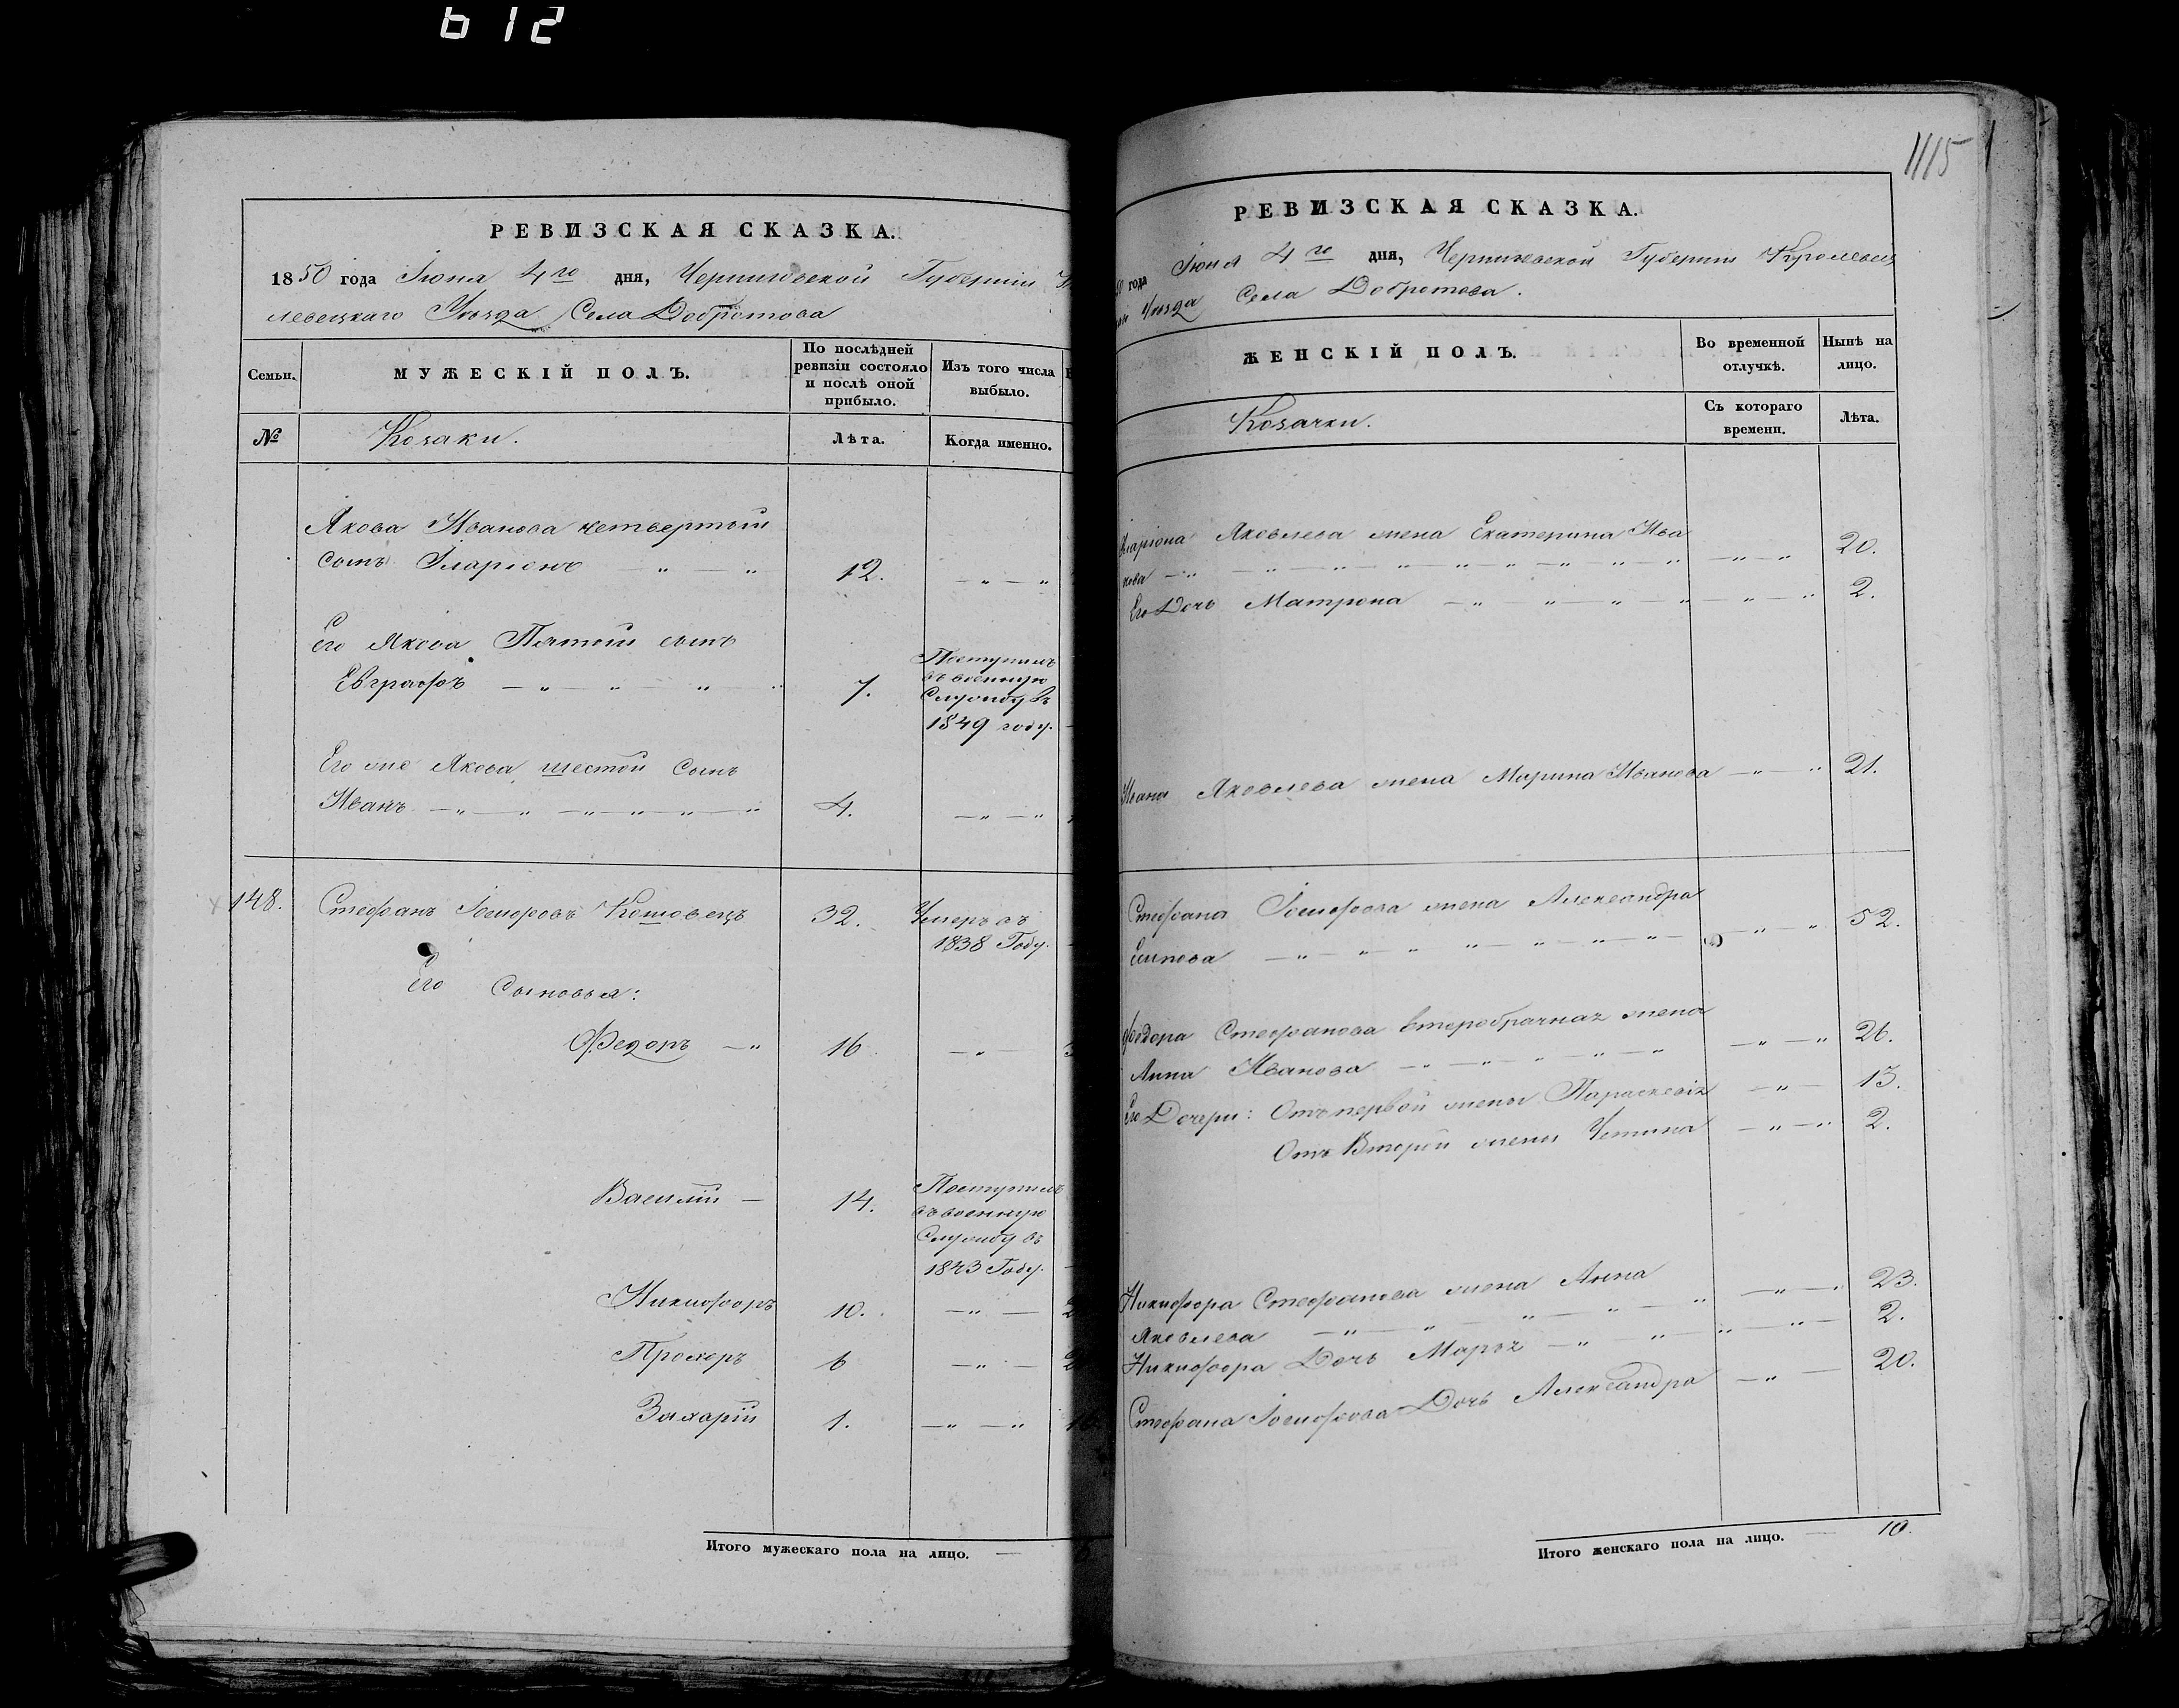 612
1115
РЕВИЗСКАЯ СКАЗКА.
1850 года Іюня 4го дня, Черниговской Губерніи
левецкаго Уѣзда Села Добротова
Семьи.
МУЖЕСКІЙ ПОЛЪ.
По послѣдней
ревизіи состояло
и послѣ оной
прибыло.
Изъ того числа
выбыло.
№
Козаки.
Лѣта.
Когда именно.
Якова Иванова четвертый
сынъ Іларіонъ — „ — „ 12. — „ — „
Его Якова Пятый сынъ
Евграфъ — „ — „ — „ 7.
Поступилъ
въ военную
Службу въ
1849 году.
Его же Якова шестой Сынъ
Иванъ — „ — „ — „ — „ — „ — „ 4. — „ — „
148. Стефанъ Іосифовъ Кошовецъ 32. Умеръ въ
1838 Году.
Его Сыновья:
Федоръ — „ 16 — „ —
Василій — 14.
Поступилъ
въ военную
Службу въ
1843 Году.
Никифоръ 10. — „ —
Прохоръ 6 — „ —
Захарій 1. — „ — „
Итого мужескаго пола на лицо. —
РЕВИЗСКАЯ СКАЗКА.
50 года Іюня 4го дня, Черниговской Губерніи Королевец
Уѣзда Села Добротова.
ЖЕНСКІЙ ПОЛЪ.
Во временной
отлучкѣ.
Нынѣ на
лицо.
Козачки.
Съ котораго
времени.
Лѣта.
Іларіона Яковлева жена Екатерина Ива
нова — „ — „ — „ — „ — „ — „ — „ 20.
Его Дочь Матрона — „ — „ — „ — „ — „ 2.
Ивана Яковлева жена Марина Иванова — „ — „ 21.
Стефана Іосифова жена Александра
— „ — „ — „ — „ — „ — „ — „ 52.
Федора Стефанова второбрачная жена
Анна Иванова — „ — „ — „ — „ — „ — „ 26.
Его Дочери: Отъ первой жены Параскевія — „ — 13.
Отъ Второй жены Устина — „ — „ 2.
Никифора Стефанова жена Анна
Яковлева — „ — „ — „ — „ — „ — „ 23.
Никифора Дочь Марья — „ — „ — „ — „ 2.
Стефана Іосифова Дочь Александра — „ — 20.
Итого женскаго пола на лицо. — 10.